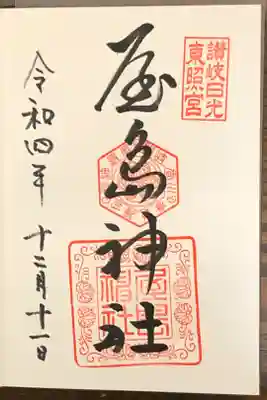 讃岐日光
東照宮
屋島神社
令和四年 十二月十一日